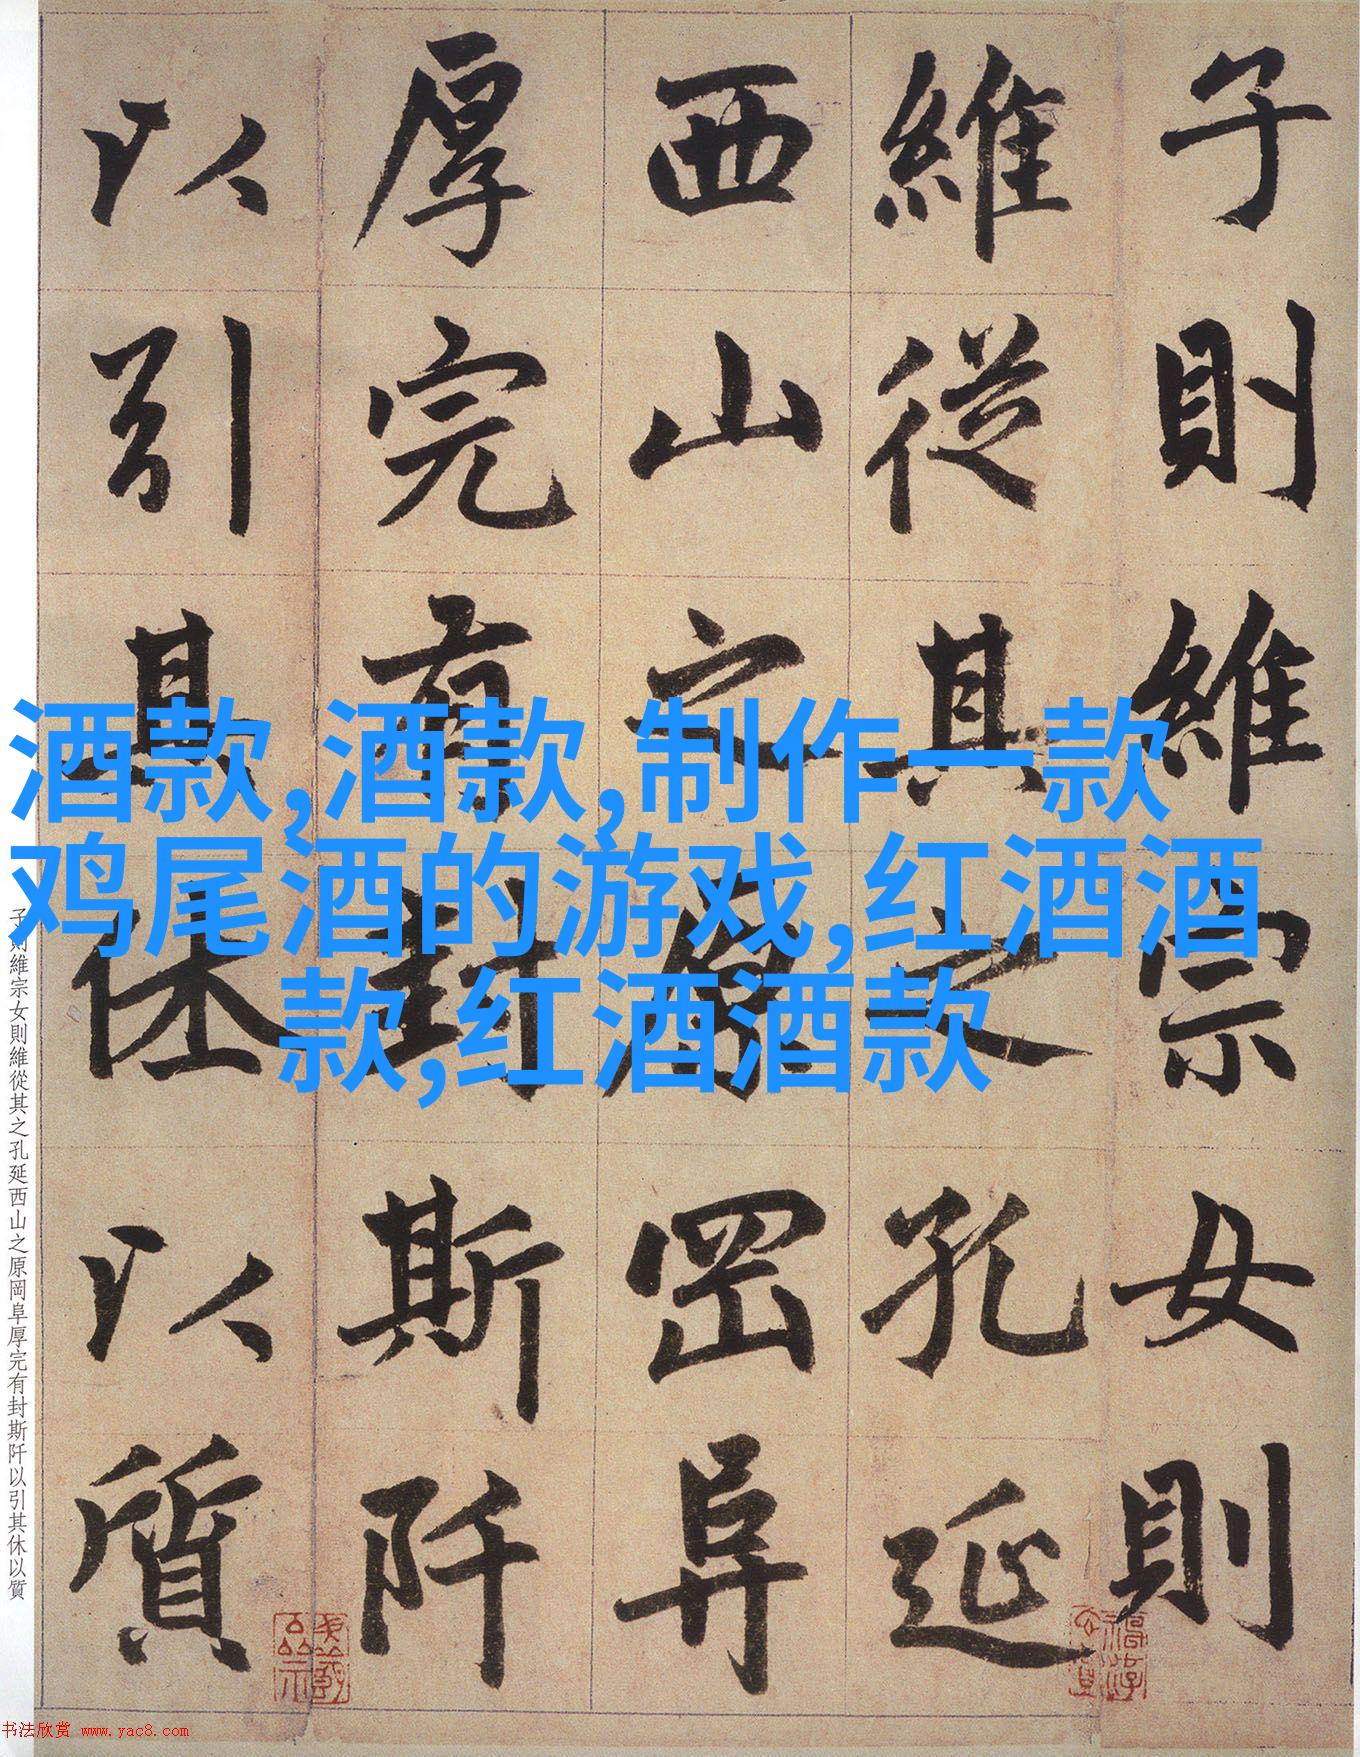 子則維宗女則
維從其之孔延
西山之原罡阜
厚完有封斯阡
以引其休以質
酒款,酒款,制作一款
鸡尾酒的游戏,红酒酒
款,红酒酒款
子則維宗女則維從其之孔延西山之原岡阜厚完有封斯阡以引其休以質
书法欣赏 www.yac8.com